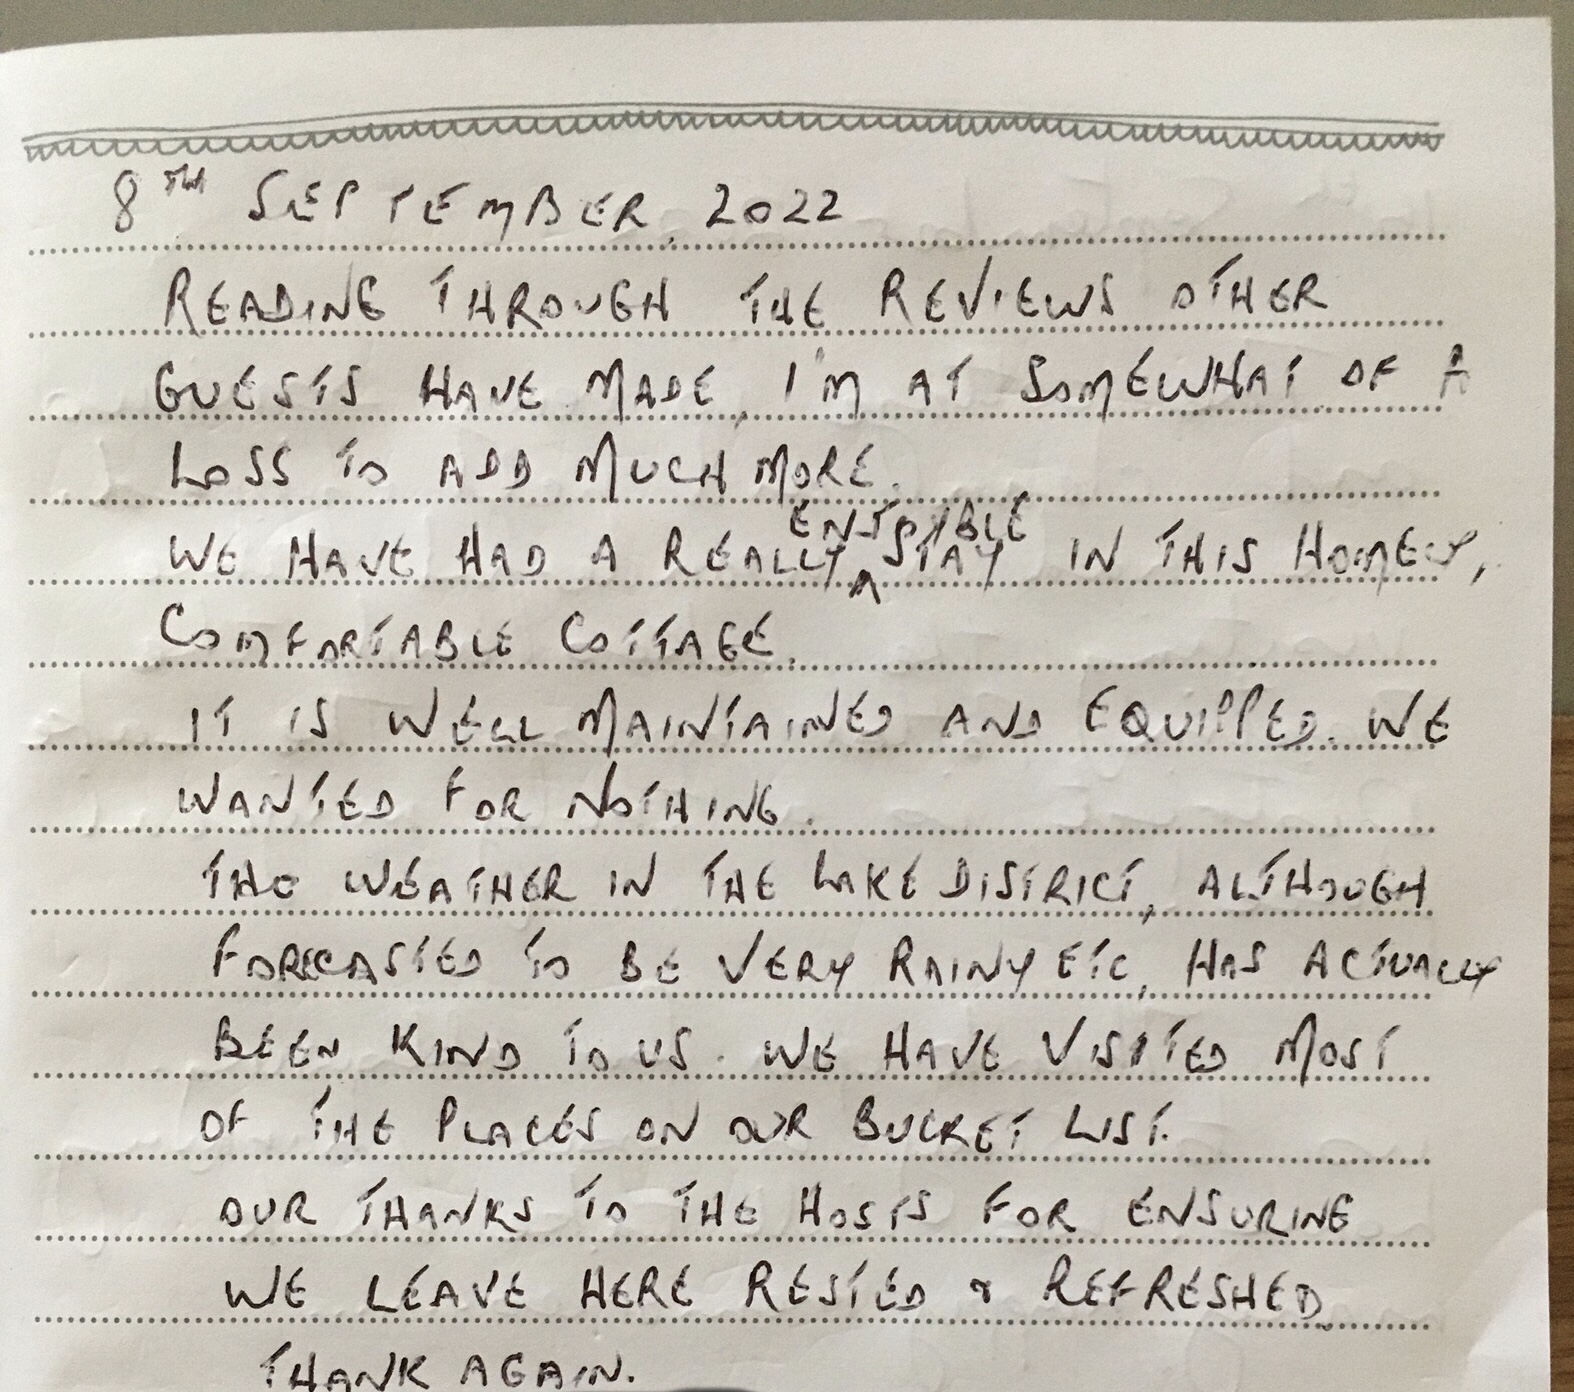 8TH SEPTEMBER, 2022
READING THROUGH THE REVIEWS OTHER
GUESTS HAVE MADE, I'M AT SOMEWHAT OF A
LOSS TO ADD MUCH MORE.
ENJOYABLE
WE HAVE HAD A REALLY ^ STAY IN THIS HOMELY,
COMFORTABLE COTTAGE.
IT IS WELL MAINTAINED AND EQUIPPED. WE
WANTED FOR NOTHING.
THE WEATHER IN THE LAKE DISTRICT, ALTHOUGH
FORECASTED TO BE VERY RAINY ETC, HAS ACTUALLY
BEEN KIND TO US. WE HAVE VISITED MOST
OF THE PLACES ON OUR BUCKET LIST.
OUR THANKS TO THE HOSTS FOR ENSURING
WE LEAVE HERE RESTED & REFRESHED.
THANK AGAIN.